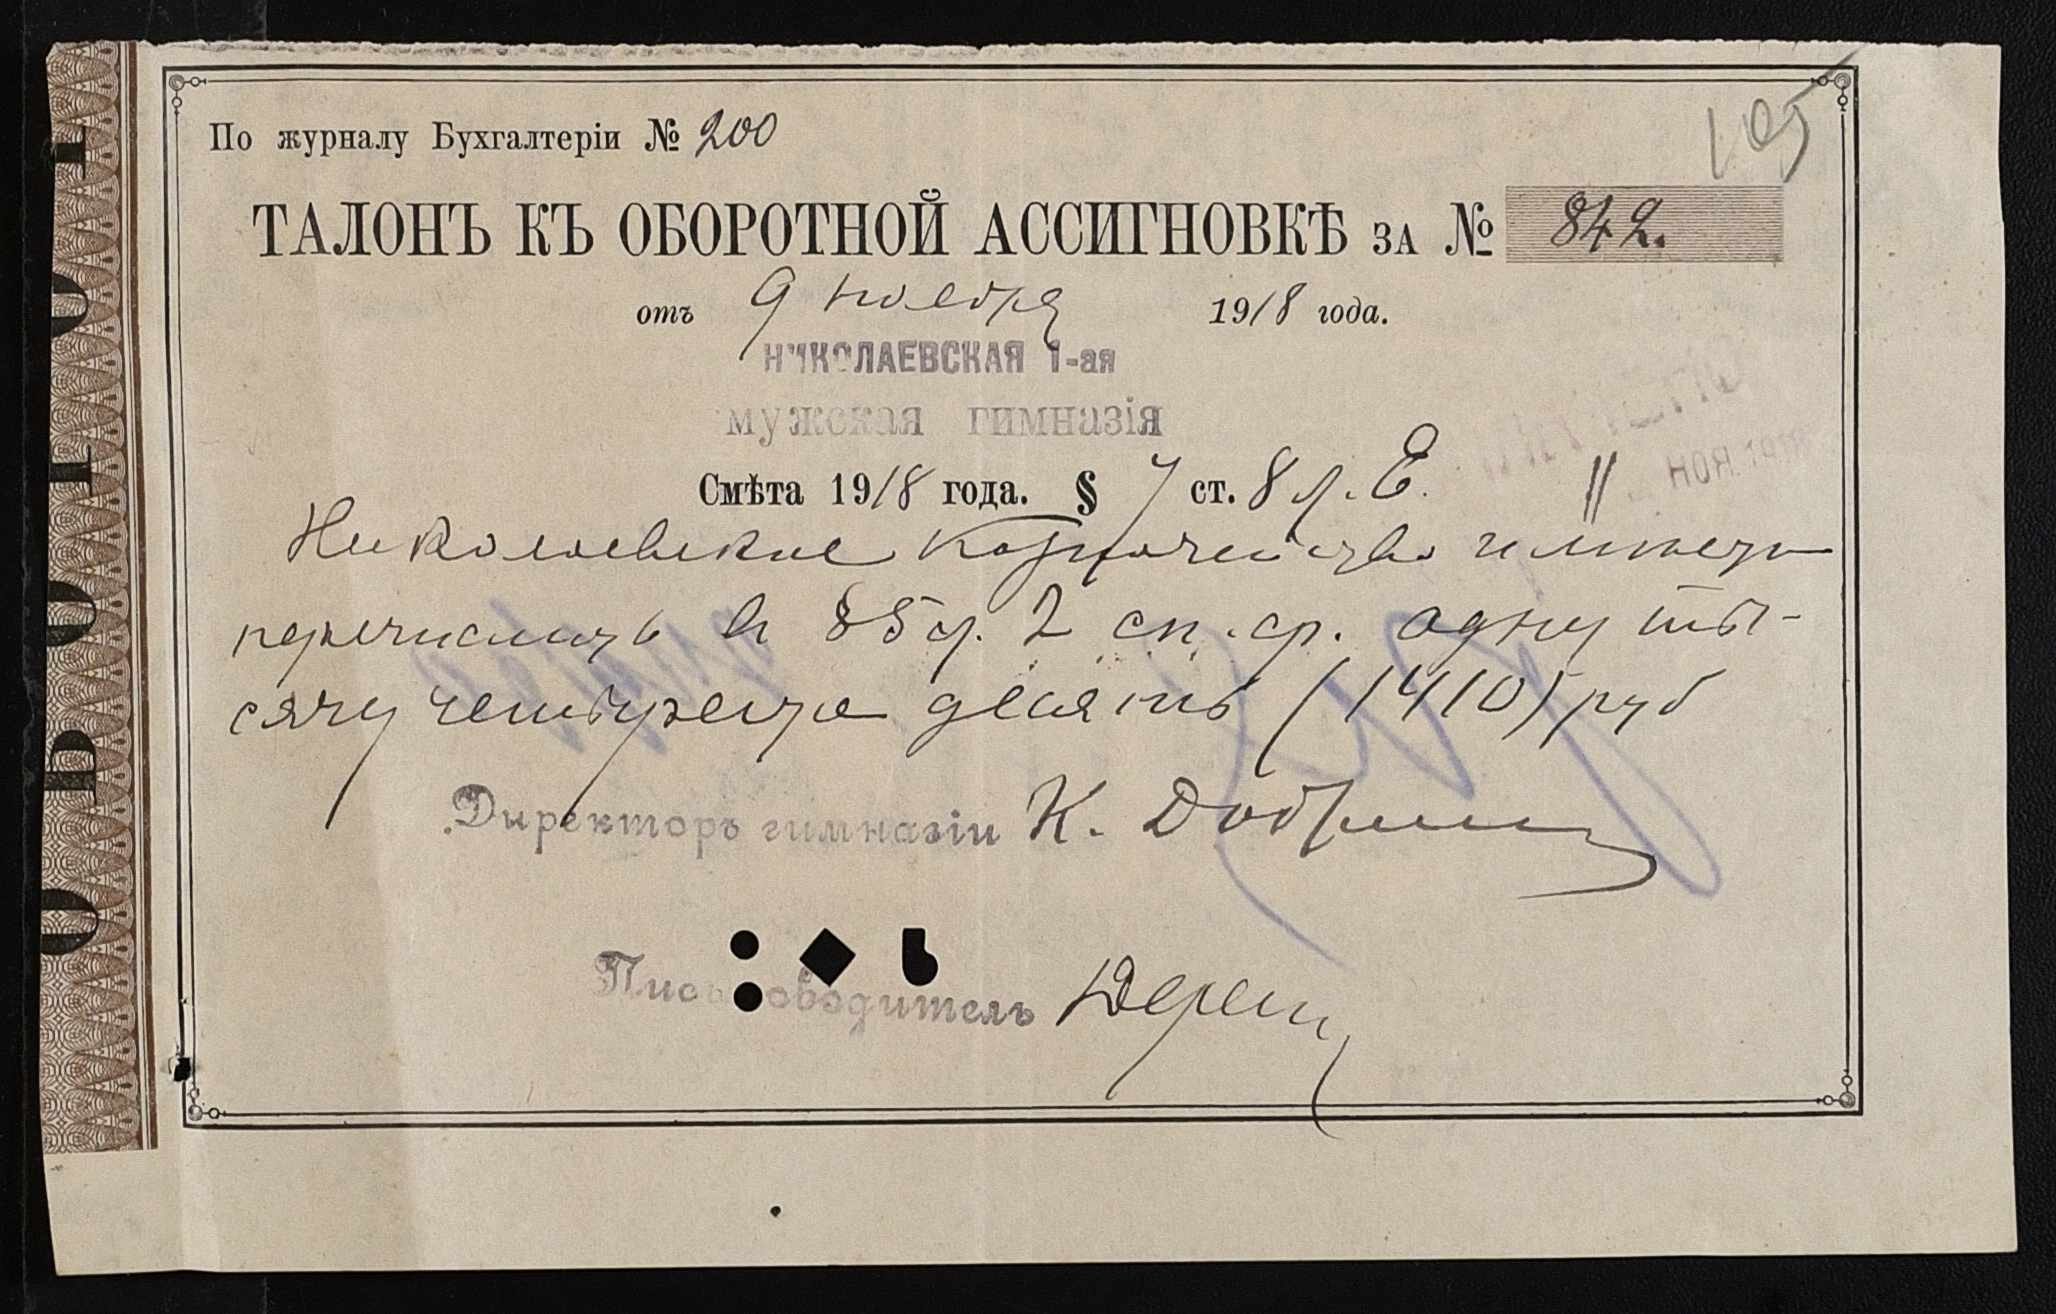 195
По журналу Бухгалтеріи № 200
ТАЛОНЪ КЪ ОБОРОТНОЙ АССИГНОВКѢ ЗА № 842.
отъ 9 ноября 1918 года.
НИКОЛАЕВСКАЯ 1-ая
мужская гимназія
Смѣта 1918 года. § 7 ст. 8 л. Е.
НОЯ. 1918
Николаевское казначейство имѣетъ
перечислить въ 85 2 сп. ср. одну ты-
сячу четыреста десять (1410) руб
Директоръ гимназіи К.
Письмоводитель
ОБОРОТ